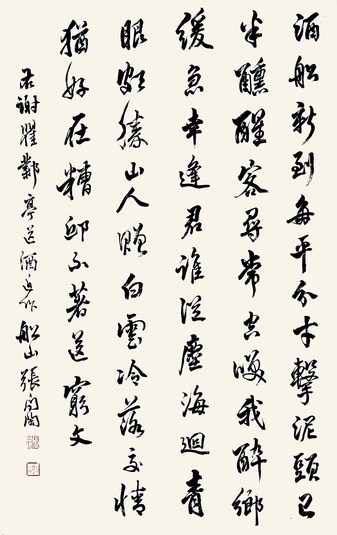 酒船新到每平分才擊泥頭已
半醺醒客尋常空我醉鄉
緩急幸逢君誰從塵海迴青
眼勝山人贈白雲冷落交情
猶好在糟邱不著送窮文
右謝瞿鄰亭送酒近作 船山張問陶